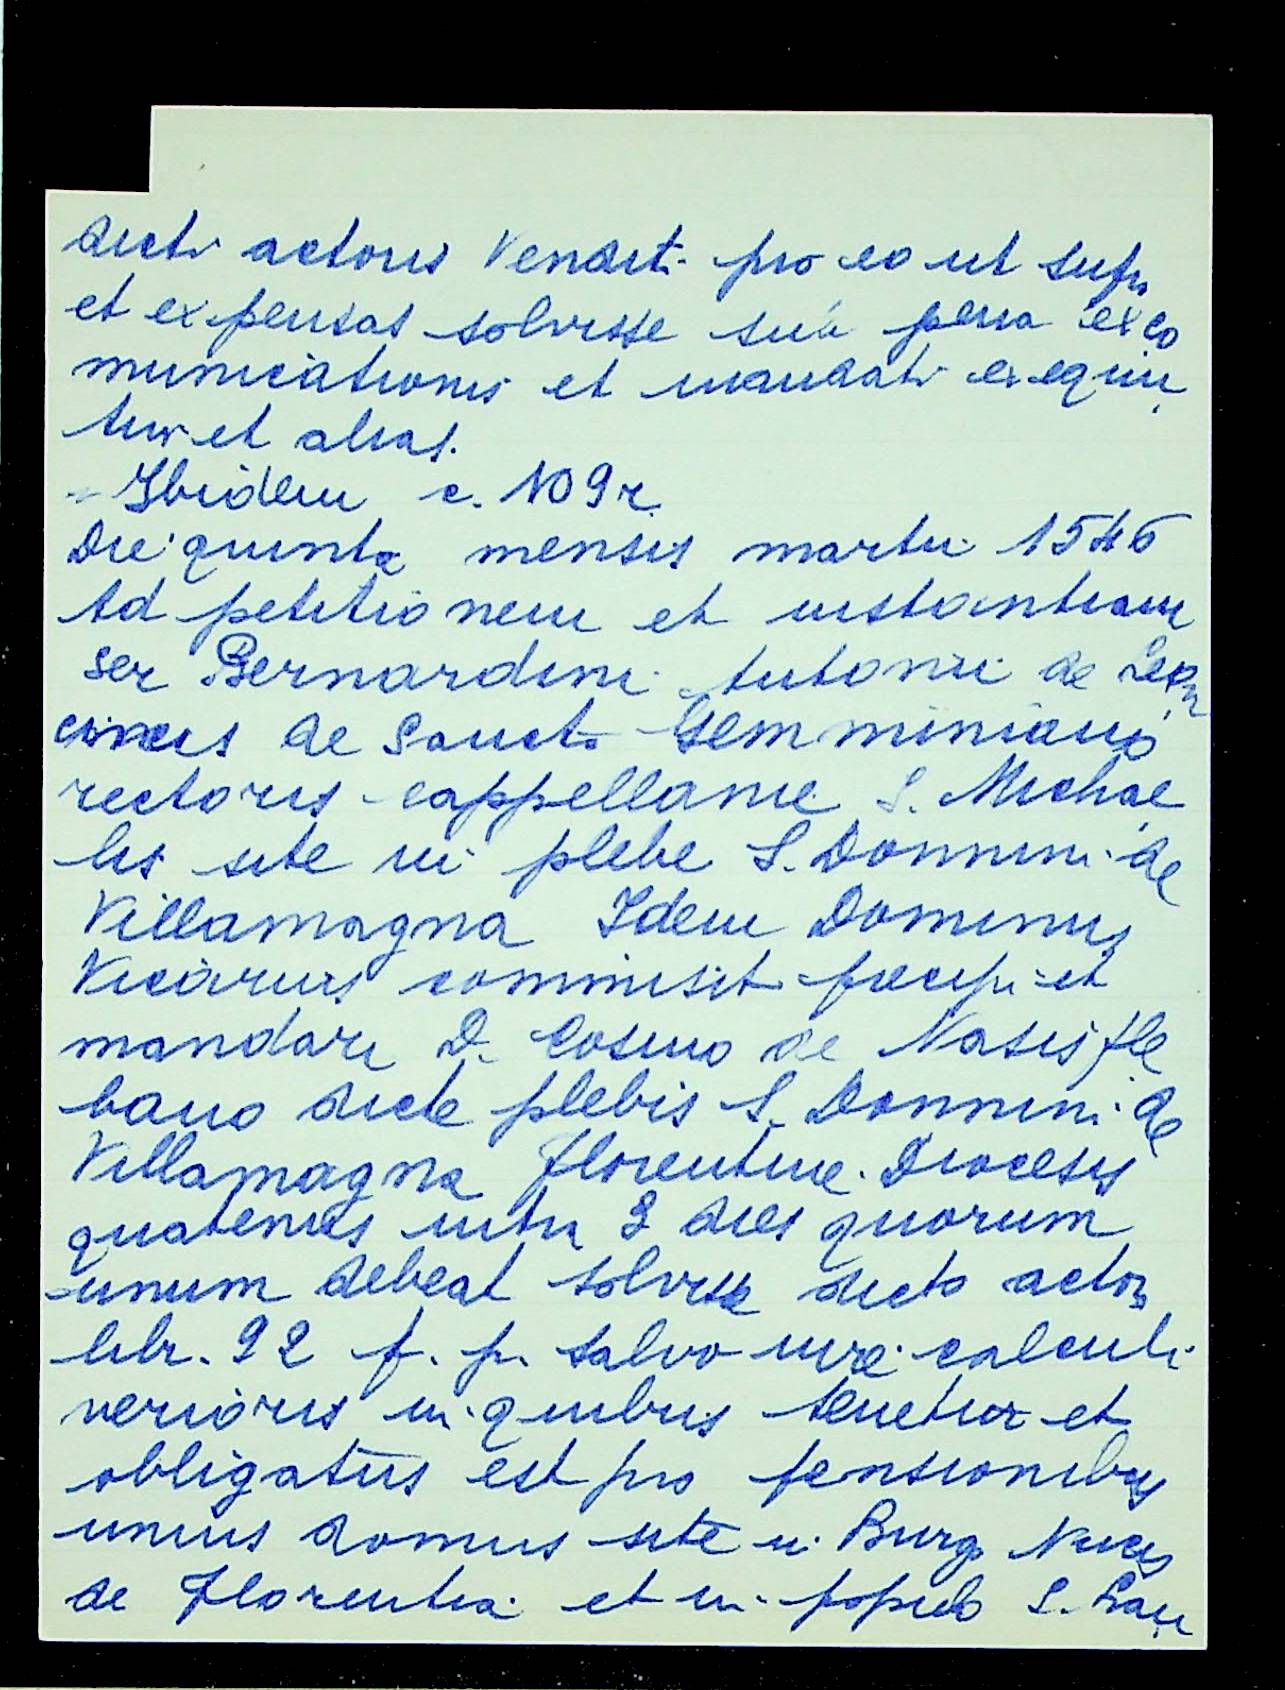 dicti actoris Vendit. pro eo ut supr
et expensas solvisse sub pena exco
municationis et mandati exequin
tur et alias.
Ibidem c. 109r.
Die quinta mensis martii 1546
Ad petitionem et instantiam
ser Bernardini Antonii de
de Sancto Gemminiano
rectoris cappellanie S. Michae
lis site in plebe S. Donnini de
Villamagna Idem Dominus
Vicarius commisit precipi et
mandari D. Cosimo de Nasis ple
bano dicte plebis S. Donnini de
Villamagna Florentine Diocesis
quatenus infra 3 dies quorum
unum debeat solvisse dicto actori
libr. 92 f. p. salvo iure calculi
verioris in quibus tenetur et
obligatus est pro pensionibus
unius domus site in Burgo Nucis
de Florentia et in populo S. Lau